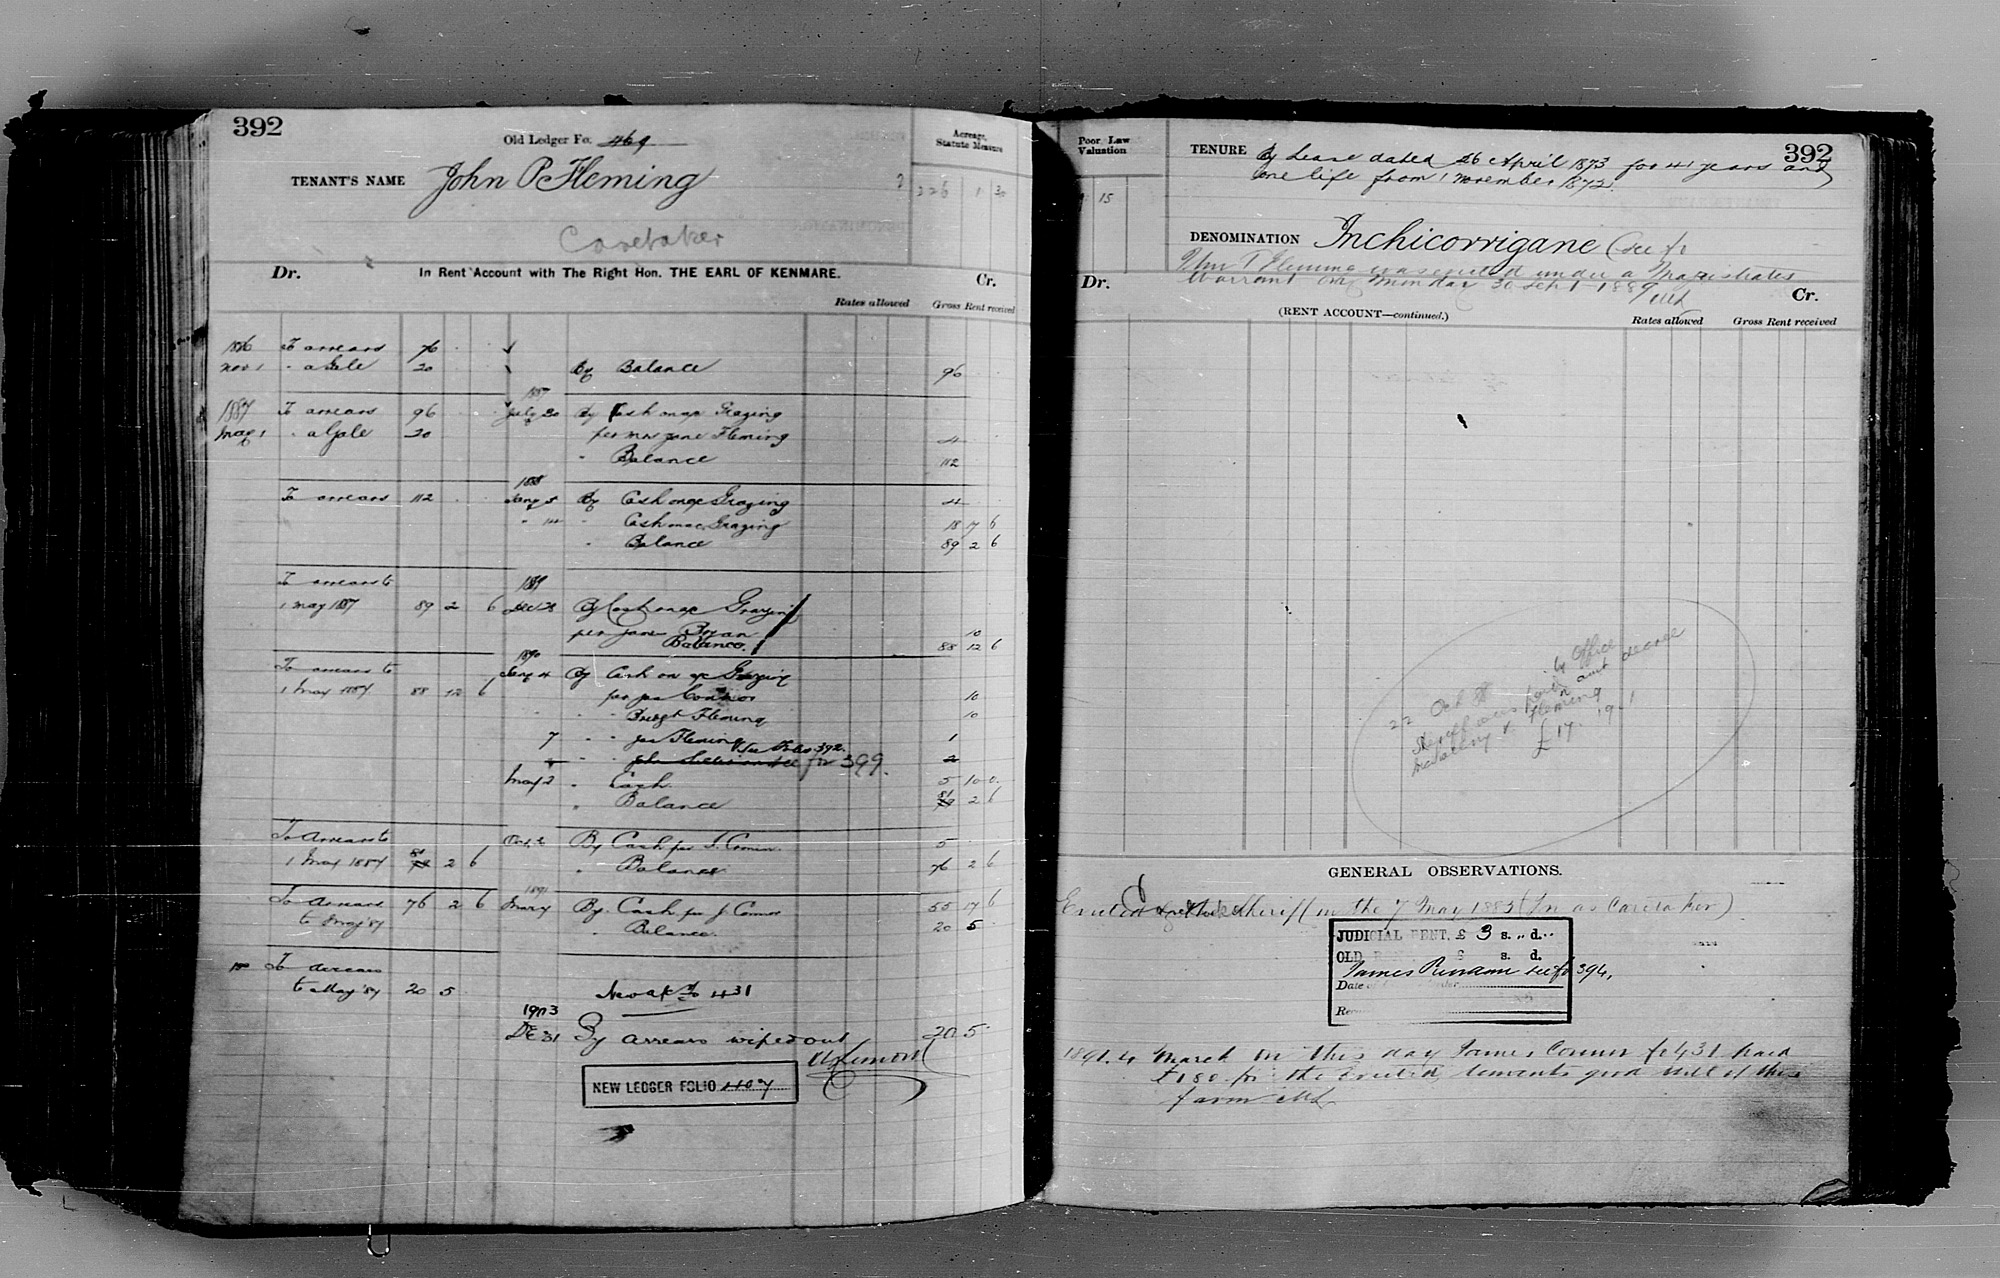 392
Old Ledger Fo: 469
TENANT'S NAME John P Fleming
Caretaker
Acreage, Statute Measure
226 1 30
Dr. In Rent Account with The Right Hon. THE EARL OF KENMARE. Cr.
Rates allowed Gross Rent received
1886 To arrears 76
Nov 1 " a Gale 20 By Balance 96
1887
1887 To arrears 96 July 20 By Cash on a/c Grazing
May 1 " a Gale 20 per Mrs Jane Fleming 4
" Balance 112
1888
To arrears 112 Jany 5 By Cash on a/c Grazing 4
" 14 " Cash on a/c Grazing 18 7 6
" Balance 89 2 6
To arrears to 1889
1 May 1887 89 2 6 Dec 28 By Cash on a/c Grazing
per Jane Bryan 10
Balance. 88 12 6
1890
To arrears to Jany 4 By Cash on a/c Grazing
1 May 1887 88 12 6 per Jas Connor 10
" " Bridgt Fleming 10
7 " " Jas Fleming 1
See Folio 392.
" " John fo 399. 2
May 2 " Cash 5 10 0
" Balance 81 2 6
To Arrears to Oct. 2 By Cash per J. Connor 5
1 May 1887 81 2 6 " Balance 76 2 6
1891
To Arrears 76 2 6 Mar 4 By Cash per J Connor 55 17 6
to May '87 " Balance. 20 5
To arrears
to May '87 20 5 New a/c fo 431
1903
De 31 By arrears wiped out 20 5
NEW LEDGER FOLIO 407
Poor Law Valuation
15
TENURE By Lease dated 26 April 1873 for 41 years and 392
one life from 1 November 1872.
DENOMINATION Inchicorrigane (see fo
John P Fleming was evicted under a Magistrates
Dr. Warrant on Monday 30 Sept 1889 Cr.
(RENT ACCOUNT—continued.) Rates allowed Gross Rent received
by Office
22 Oct 88
Sheriff was paid amt decree
v Fleming
£17. 9. 1
GENERAL OBSERVATIONS.
Evicted by the Sheriff on the 7 May 1883 (In as Caretaker)
JUDICIAL RENT, £ 3 s. " d. "
OLD £ s. d.
James see fo 394,
Date of
1891. 4 March on this day James Connor fo 431 paid
£180 for the evicted tenants good will of this
farm